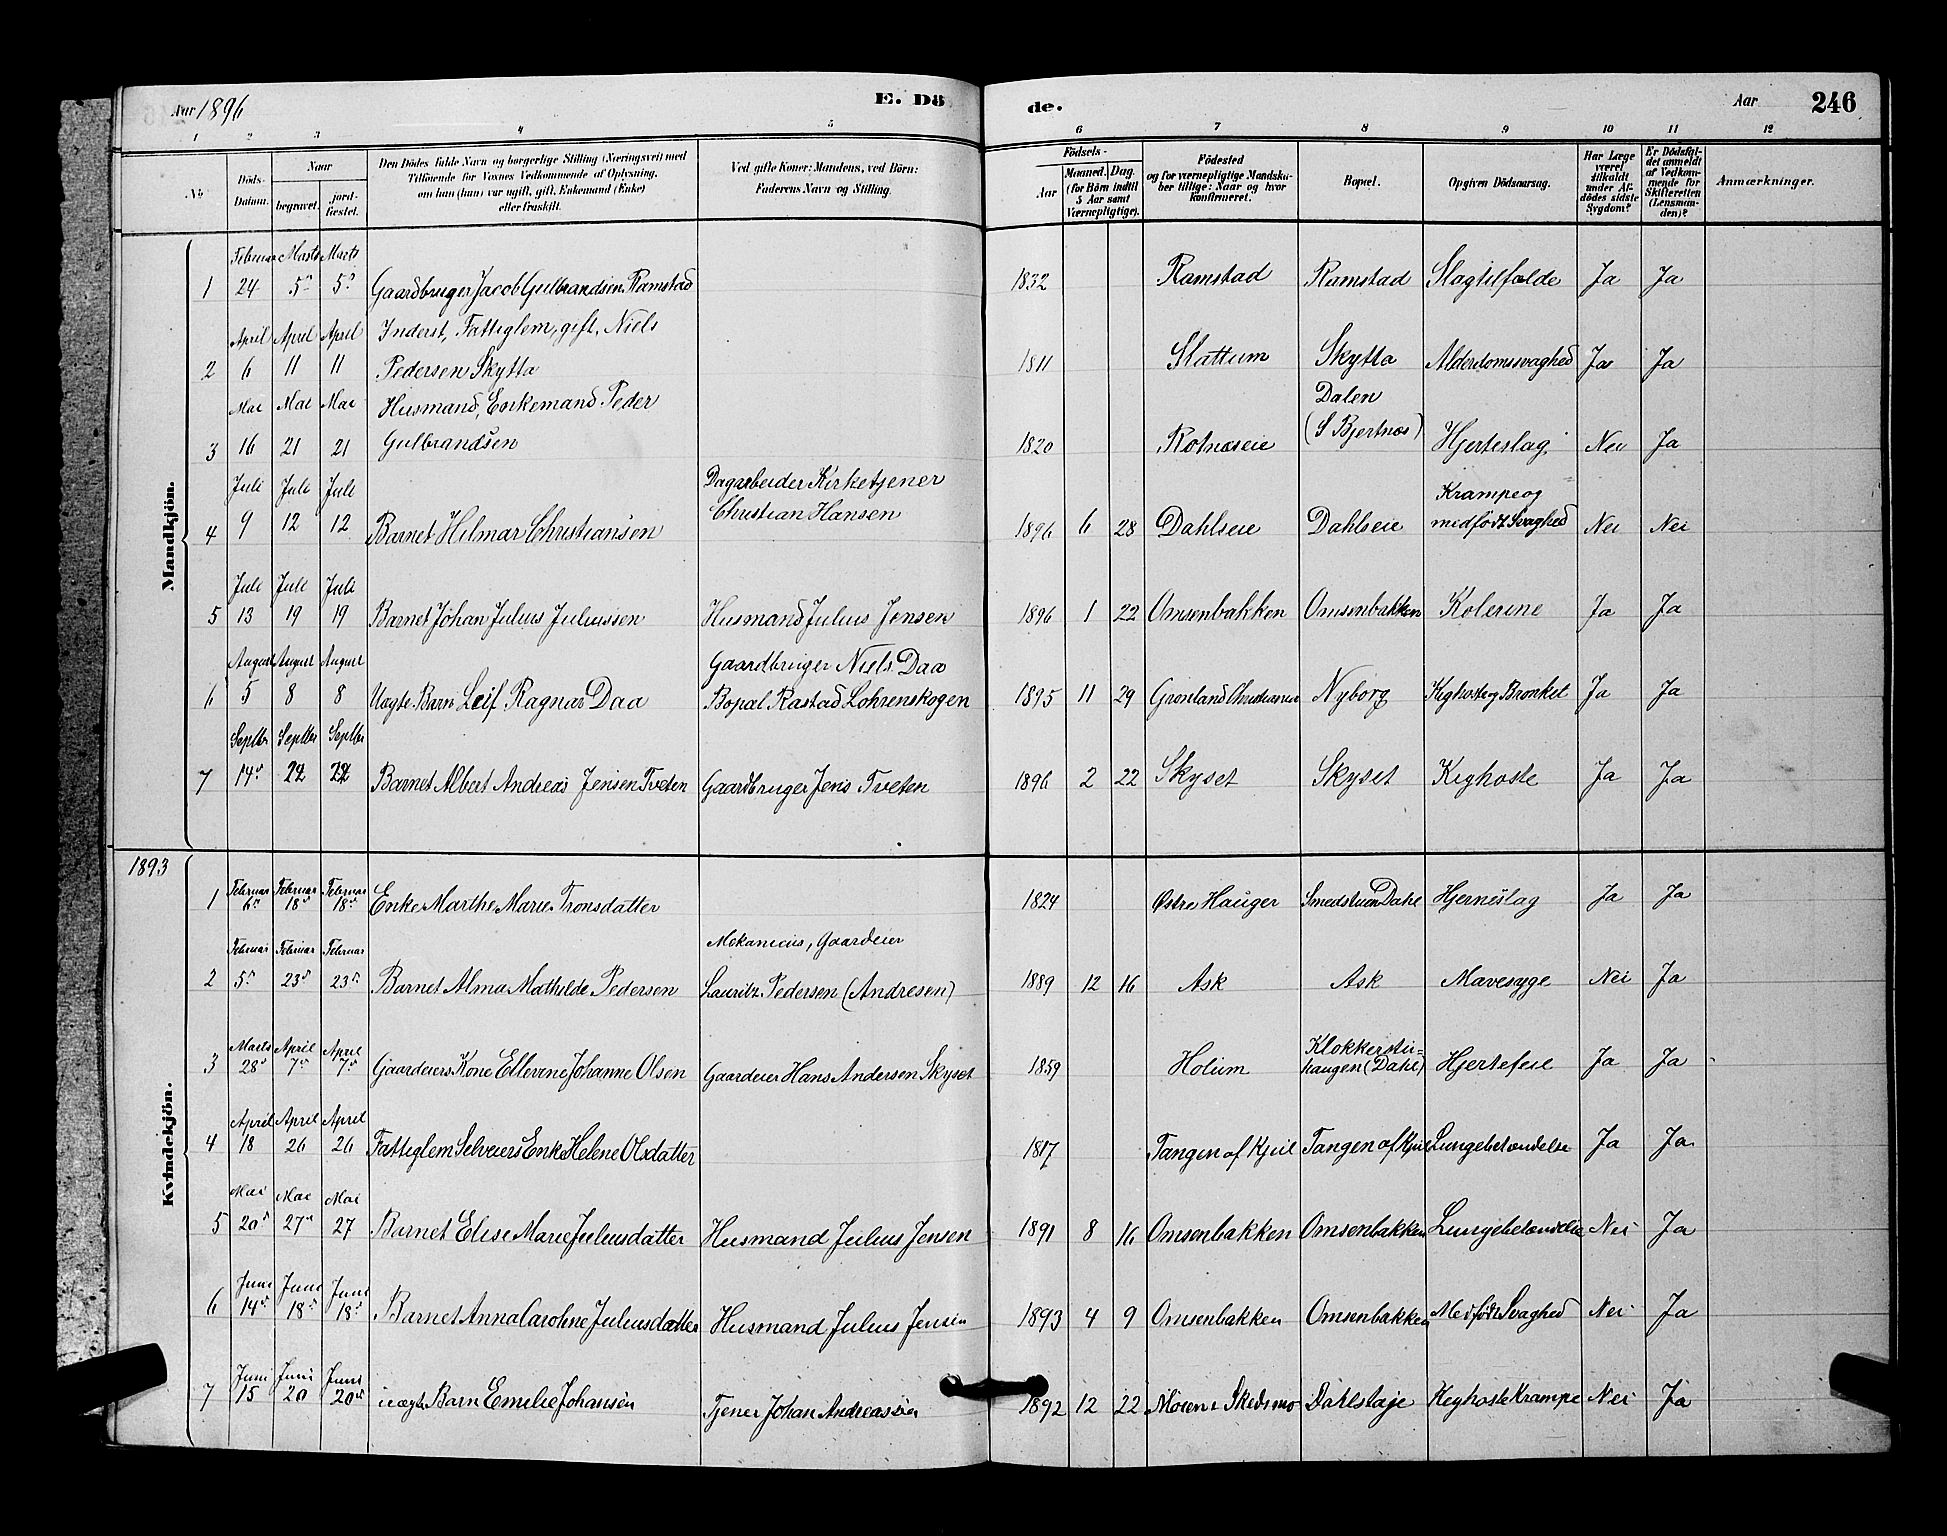 Aar 1896 E. Dö
de. Aar 246
1 2 3 4 5 6 7 8 9 10 11 12
No. Döds-Datum. Naar begravet. jord-fæstet. Den Dödes fulde Navn og borgerlige Stilling (Næringsvei) med Tilföiende for Voxnes Vedkommende af Oplysning, om han (hun) var ugift, gift, Enkemand (Enke) eller fraskilt. Ved gifte Koner: Mandens, ved Börn: Faderens Navn og Stilling. Födsels- Aar Maaned. Dag. (for Börn indtil 5 Aar samt Værnepligtige). Födested og for værnepligtige Mandskaber tillige: Naar og hvor konfirmeret. Bopæl. Opgiven Dödsaarsag. Har Læge været tilkaldt under Afdödes sidste Sygdom? Er Dödsfaldet anmeldt af Vedkommende for Skifteretten (Lensmanden)? Anmærkninger.
Mandkjön.
Februar Marts Marts
1 24 5 5 Gaardbruger Jacob Gulbrandsen Ramstad 1832 Ramstad Ramstad Slagtilfælde Ja Ja
April April April Inderst, Fattiglem, gift, Niels
2 6 11 11 Pedersen Skytta 1811 Slattum Skytta Alderdomssvaghed Ja Ja
Mai Mai Mai Husmand, Enkemand Peder Dalen
3 16 21 21 Gulbrandsen 1820 Rotnæseie (S Bjertnæs) Hjerteslag Nei Ja
Juli Juli Juli Dagarbeider Kirketjener Krampe og
4 9 12 12 Barnet Hilmar Christiansen Christian Hansen 1896 6 28 Dahlseie Dahlseie medfødt Svaghed Nei Nei
Juli Juli Juli
5 13 19 19 Barnet Johan Julius Juliussen Husmand Julius Jensen 1896 1 22 Omsenbakken Omsenbakken Kolerine Ja Ja
August August August Gaardbruger Niels Daa
6 5 8 8 Uægte Barn Leif Ragnar Daa Bopæl Rastad Lohrenskogen 1895 11 29 Grønland Christiania Nyborg Kighoste og Bronkit Ja Ja
Septbr Septbr Septbr
7 14 22 22 Barnet Albert Andreas Jensen Tveten Gaardbruger Jens Tveten 1896 2 22 Skyset Skyset Kighoste Ja Ja
1893
Kvindekjön.
Februar Februar Februar
1 6 18 18 Enke Marthe Marie Tronsdatter 1824 Østre Hauger Smedstuen Dahl Hjerneslag Ja Ja
Februar Februar Februar Mekanicus, Gaardeier
2 5 23 23 Barnet Alma Mathilde Pedersen Lauritz Pedersen (Andresen) 1889 12 16 Ask Ask Mavesyge Nei Ja
Marts April April Klokkerstu-
3 28 7 7 Gaardeiers Kone Ellevine Johanne Olsen Gaardeier Hans Andersen Skyset 1859 Holum haugen (Dahl) Hjertefeil Ja Ja
April April April
4 18 26 26 Fattiglem Selveiers Enke Helene Olsdatter 1817 Tangen af Kjul Tangen af Kjul Lungebetændelse Ja Ja
Mai Mai Mai
5 20 27 27 Barnet Elise Marie Juliusdatter Husmand Julius Jensen 1891 8 16 Omsenbakken Omsenbakken Lungebetændelse Nei Ja
Juni Juni Juni
6 14 18 18 Barnet Anna Caroline Juliusdatter Husmand Julius Jensen 1893 4 9 Omsenbakken Omsenbakken Medfødt Svaghed Nei Ja
Juni Juni Juni
7 15 20 20 uægte Barn Emelie Johansen Tjener Johan Andreassen 1892 12 22 Moen i Skedsmo Dahlstaje Kighoste Krampe Nei Ja